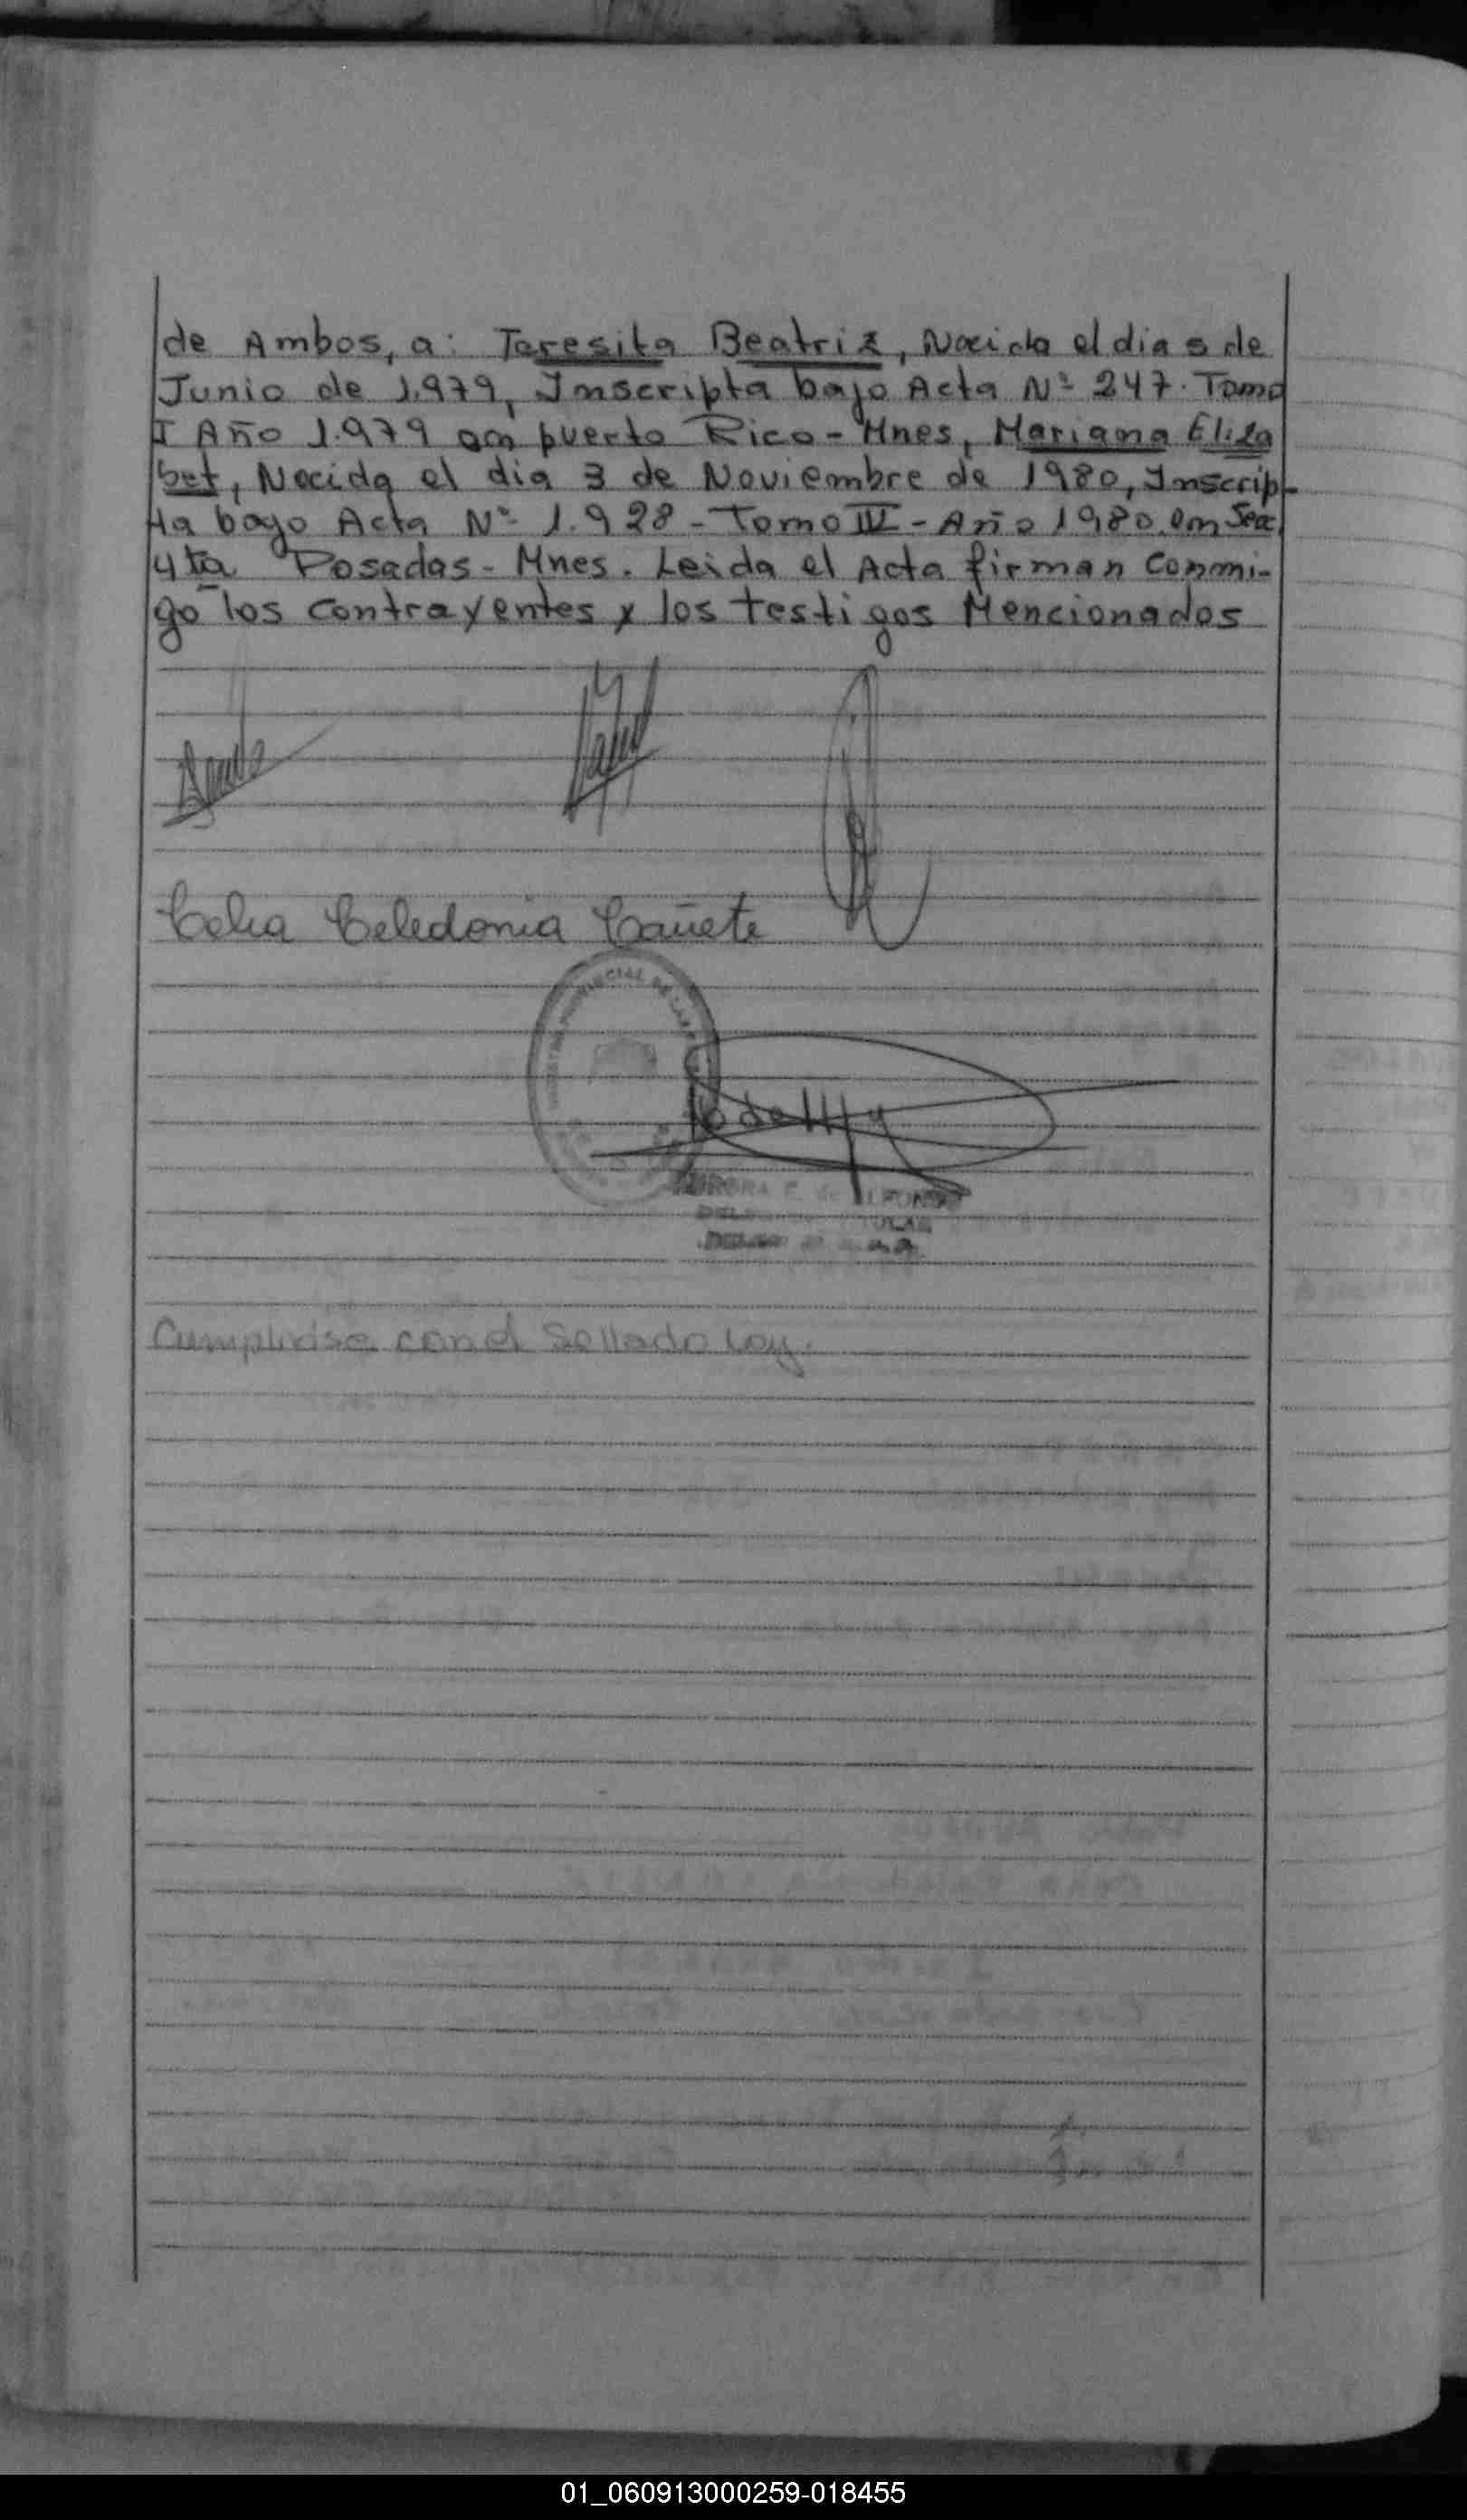 de Ambos, a: Teresita Beatriz, Nacida el dia 5 de
Junio de 1.979, Inscripta bajo Acta Nº 247. Tomo
I Año 1.979 en puerto Rico - Mnes, Mariana Eliza
bet, Nacida el dia 3 de Noviembre de 1980, Inscrip-
ta bajo Acta Nº 1.928 - Tomo IV - Año 1980 en Sec.
4ta Posadas - Mnes. Leida el Acta firman Conmi-
go los contrayentes y los testigos Mencionados
Celia Celedonia Cañete
Cumplidise con el Sellado Ley.
01_060913000259-018455